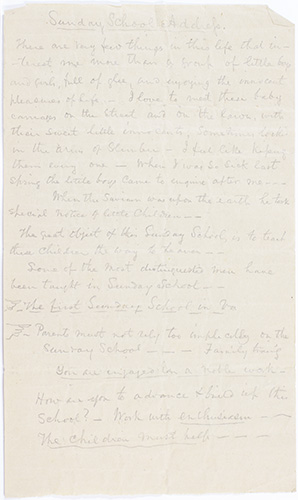 Sunday School Address.
There are very few things in this life that in-
terest me more than a group of little boys
and girls, full of glee, and enjoying the innocent
pleasures of life. - I love to meet these baby
carriages on the street and on the lawn, with
their sweet little innocents, sometimes locked
in the arms of Slumber - I feel like kissing
them every one - When I was so sick last
spring the little boys came to enquire after me - - -
When the Saviour was upon the earth he took
special notice of little Children - - -
The great object of the Sunday School, is to teach
these Children the way to heaven - -
Some of the most distinguished men have
been taught in Sunday School - -
The first Sunday School in
Parents must not rely too implicitly on the
Sunday School - - - Family
You are engaged in a noble work -
How are you to advance & build up this
School? - Work with enthusiasm - -
The Children must help - - - -